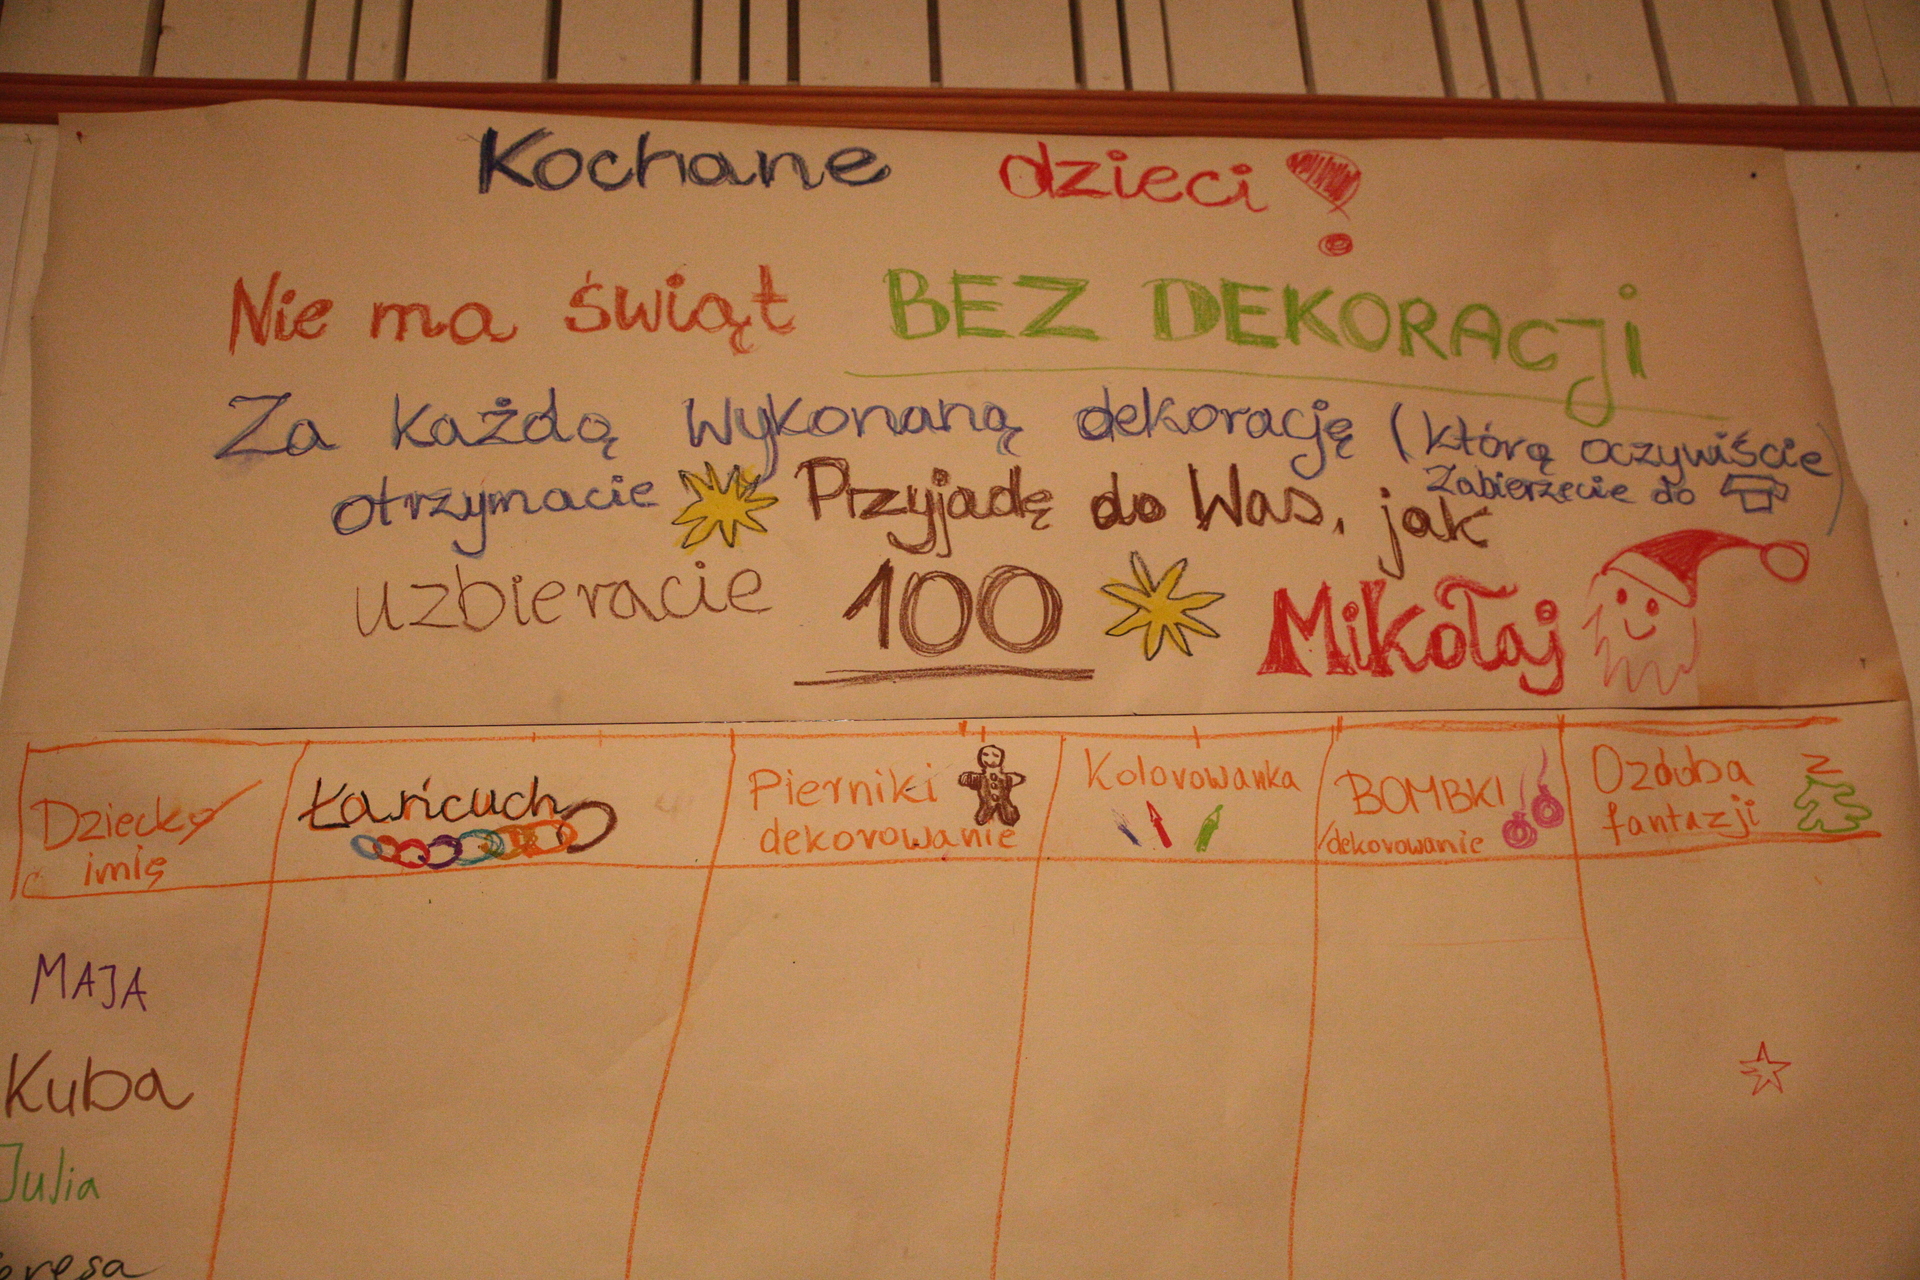 Kochane dzieci!
Nie ma świąt BEZ DEKORACJi
Za każdą wykonaną dekorację (którą oczywiście
zabierzecie do )
otrzymacie Przyjadę do Was, jak
uzbieracie 100 Mikołaj
Dziecko imię
Łańcuch
Pierniki dekorowanie
Kolorowanka
BOMBKI dekorowanie
Ozdoba fantazji
MAJA
Kuba
Julia